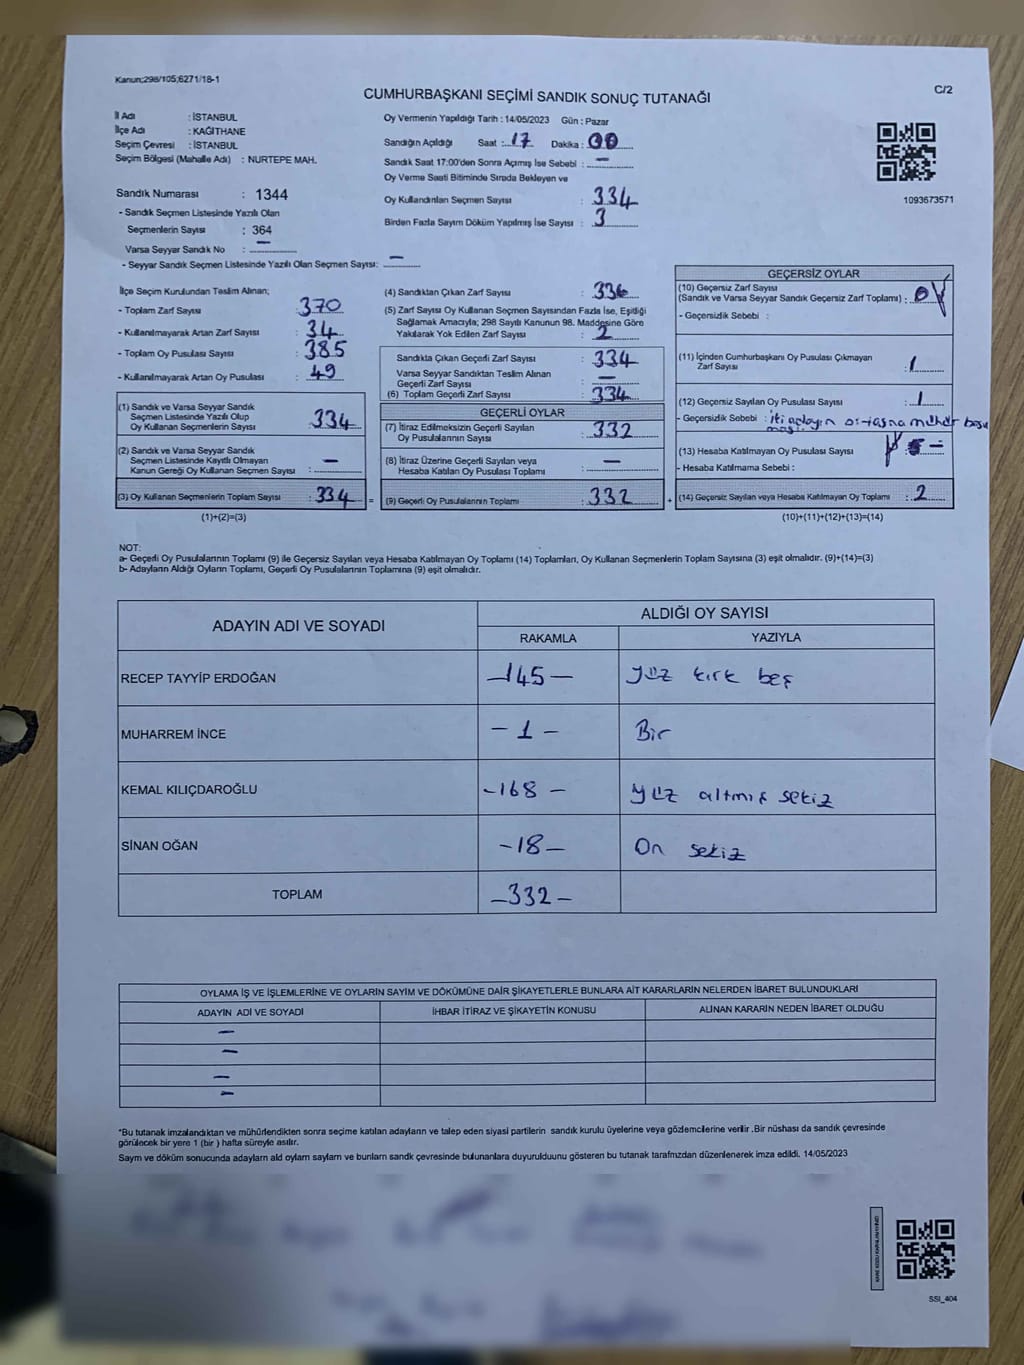 Kanun;298/105;6271/18-1
C/2
CUMHURBAŞKANI SEÇİMİ SANDIK SONUÇ TUTANAĞI
İl Adı : İSTANBUL
İlçe Adı : KAĞITHANE
Seçim Çevresi : İSTANBUL
Seçim Bölgesi (Mahalle Adı) : NURTEPE MAH.
Sandık Numarası : 1344
- Sandık Seçmen Listesinde Yazılı Olan
Seçmenlerin Sayısı : 364
Varsa Seyyar Sandık No : —
- Seyyar Sandık Seçmen Listesinde Yazılı Olan Seçmen Sayısı: —
Oy Vermenin Yapıldığı Tarih : 14/05/2023 Gün : Pazar
Sandığın Açıldığı Saat : 17 Dakika : 00
Sandık Saat 17:00'den Sonra Açılmış İse Sebebi : —
Oy Verme Saati Bitiminde Sırada Bekleyen ve
Oy Kullandırılan Seçmen Sayısı : 334
Birden Fazla Sayım Döküm Yapılmış İse Sayısı : 3
1093673571
İlçe Seçim Kurulundan Teslim Alınan;
- Toplam Zarf Sayısı : 370
- Kullanılmayarak Artan Zarf Sayısı : 34
- Toplam Oy Pusulası Sayısı : 385
- Kullanılmayarak Artan Oy Pusulası : 49
(1) Sandık ve Varsa Seyyar Sandık
Seçmen Listesinde Yazılı Olup
Oy Kullanan Seçmenlerin Sayısı : 334
(2) Sandık ve Varsa Seyyar Sandık
Seçmen Listesinde Kayıtlı Olmayan
Kanun Gereği Oy Kullanan Seçmen Sayısı : —
(3) Oy Kullanan Seçmenlerin Toplam Sayısı : 334 =
(1)+(2)=(3)
(4) Sandıktan Çıkan Zarf Sayısı : 336
(5) Zarf Sayısı Oy Kullanan Seçmen Sayısından Fazla İse, Eşitliği
Sağlamak Amacıyla; 298 Sayılı Kanunun 98. Maddesine Göre
Yakılarak Yok Edilen Zarf Sayısı : 2
Sandıkta Çıkan Geçerli Zarf Sayısı : 334
Varsa Seyyar Sandıktan Teslim Alınan
Geçerli Zarf Sayısı : —
(6) Toplam Geçerli Zarf Sayısı : 334
GEÇERLİ OYLAR
(7) İtiraz Edilmeksizin Geçerli Sayılan
Oy Pusulalarının Sayısı : 332
(8) İtiraz Üzerine Geçerli Sayılan veya
Hesaba Katılan Oy Pusulası Toplamı : —
(9) Geçerli Oy Pusulalarının Toplamı : 332 +
GEÇERSİZ OYLAR
(10) Geçersiz Zarf Sayısı
(Sandık ve Varsa Seyyar Sandık Geçersiz Zarf Toplamı) : 0
- Geçersizlik Sebebi :
(11) İçinden Cumhurbaşkanı Oy Pusulası Çıkmayan
Zarf Sayısı : 1
(12) Geçersiz Sayılan Oy Pusulası Sayısı : 1
- Geçersizlik Sebebi : iki adayın ortasına mühür
(13) Hesaba Katılmayan Oy Pusulası Sayısı : —
- Hesaba Katılmama Sebebi :
(14) Geçersiz Sayılan veya Hesaba Katılmayan Oy Toplamı : 2
(10)+(11)+(12)+(13)=(14)
NOT:
a- Geçerli Oy Pusulalarının Toplamı (9) ile Geçersiz Sayılan veya Hesaba Katılmayan Oy Toplamı (14) Toplamları, Oy Kullanan Seçmenlerin Toplam Sayısına (3) eşit olmalıdır. (9)+(14)=(3)
b- Adayların Aldığı Oyların Toplamı, Geçerli Oy Pusulalarının Toplamına (9) eşit olmalıdır.
ADAYIN ADI VE SOYADI ALDIĞI OY SAYISI
RAKAMLA YAZIYLA
RECEP TAYYİP ERDOĞAN —145— Yüz kırk beş
MUHARREM İNCE —1— Bir
KEMAL KILIÇDAROĞLU —168— yüz altmış sekiz
SİNAN OĞAN —18— On sekiz
TOPLAM —332—
OYLAMA İŞ VE İŞLEMLERİNE VE OYLARIN SAYIM VE DÖKÜMÜNE DAİR ŞİKAYETLERLE BUNLARA AİT KARARLARIN NELERDEN İBARET BULUNDUKLARI
ADAYIN ADI VE SOYADI İHBAR İTİRAZ VE ŞİKAYETİN KONUSU ALINAN KARARIN NEDEN İBARET OLDUĞU
—
—
—
—
*Bu tutanak imzalandıktan ve mühürlendikten sonra seçime katılan adayların ve talep eden siyasi partilerin sandık kurulu üyelerine veya gözlemcilerine verilir .Bir nüshası da sandık çevresinde
görülecek bir yere 1 (bir ) hafta süreyle asılır.
Sayım ve döküm sonucunda adayların ald oyların sayların ve bunların sandk çevresinde bulunanlara duyurulduunu gösteren bu tutanak tarafmzdan düzenlenerek imza edildi. 14/05/2023
SSI_404